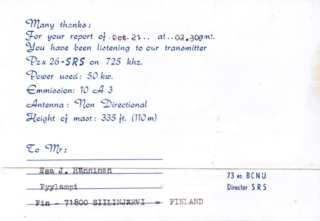 Many thanks:
For your report of Oct.21.. at..02.30gmt.
You have been listening to our transmitter
Pzx 26-SRS on 725 khz.
Power used: 50 kw.
Emmission: 10 A 3
Antenna: Non Directional
Height of mast: 335 ft. (110 m)
To Mr:
Esa J. Hänninen
Pyylampi
Fin - 71800 SIILINJÄRVI = FINLAND
73 es BCNU
Director SRS